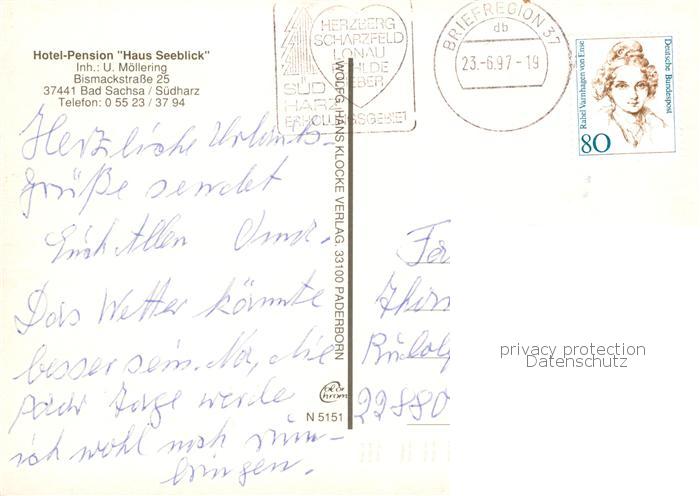 Hotel-Pension "Haus Seeblick"
Inh.: U. Möllering
Bismackstraße 25
37441 Bad Sachsa / Südharz
Telefon: 0 55 23 / 37 94
HERZBERG
SCHARZFELD
LONAU
SIEBER
SÜD
HARZ
ERHOLUNGSGEBIET
BRIEFREGION 37
db
23.-6.97-19
Deutsche Bundespost
Rahel Varnhagen von Ense
80
Herzliche Urlaubs-
grüße sendet
Euch Allen Oma.
Das Wetter könnte
besser sein. Na, die
paar Tage werde
ich wohl noch rum-
bringen.
WOLFG. HANS KLOCKE VERLAG. 33100 PADERBORN
color
chrom
N 5151
Fa
Rudolf
22880
privacy protection
Datenschutz